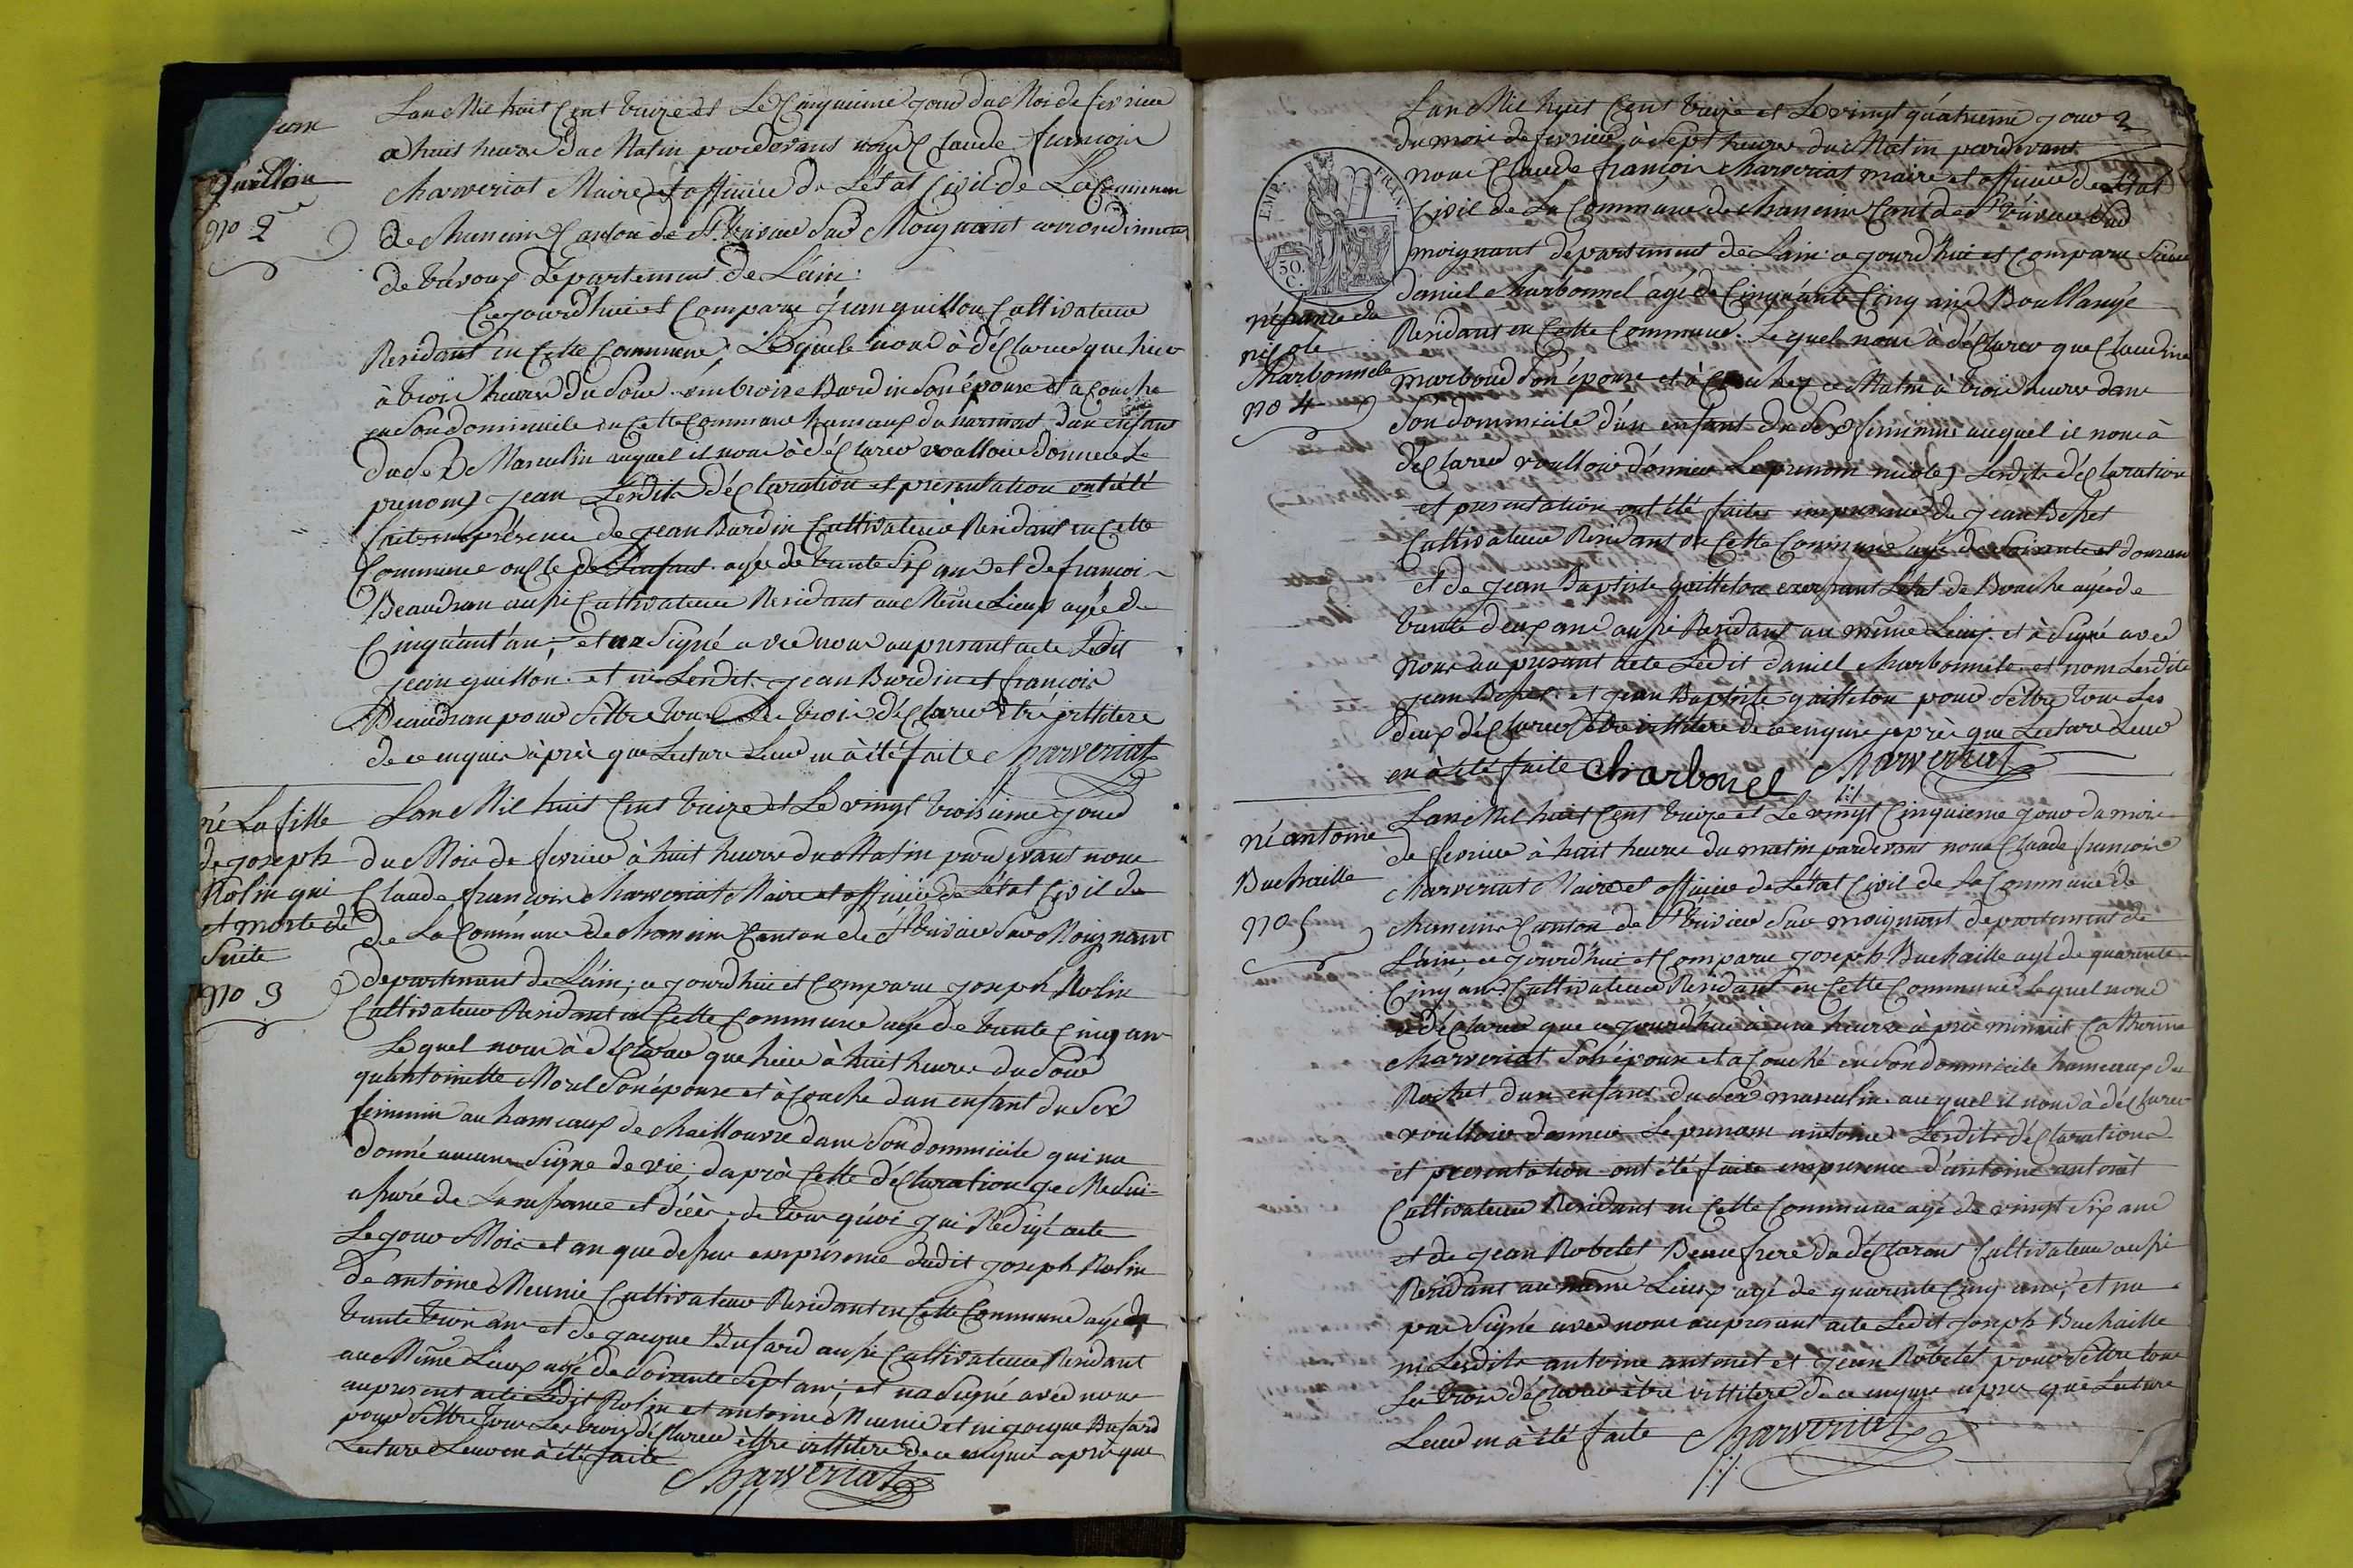 Jean
Guillon
no 2
Lan Mil huit Cent treize et Le Cinquieme jour du Mois de fevrier
a huit heures du Matin pardevant nous Claude francois
Charveriat Maire et officier de Létat Civil de La Commune
de Chaneins Canton de St. trivier Sur Moignant arrondissement
de trévoux Département de L'ain.
Cejourdhuit et Comparu Jean guillon Cultivateur
Residant en Cette Commune, Lequel nous à déClarer que hier
à trois heures du Soir embroise Bardin Son épouse et a Couché
en Son dominicile en Cette Commune hameaux du dun enfant
du Sex Masculin auquel il nous à déClarer voulloir donner Le
prenom Jean Lesdits déClaration et présentation ont été
faites en présence de Jean Bardin Cultivateur Residant en Cette
Commune oncle de L'enfant agée de trante Six ans et de francois
Beaudran aussi Cultivateur Residant au Même Lieux agée de
Cinquant an, et na Signé avec nous au present acte Ledit
Jean guillon et ni Lesdit Jean Bardin et francois
Beaudran pour Settre tous Les trois déClarer être jllitere
de ce enquis à près que Lecture Leur en à été faite Charveriat
né La fille
de joseph
Rolin qui
et morte de
Suite
no 3
Lan Mil huit Cent treize et Le vingt troisieme jour
du Mois de fevrier à huit heures du Matin pardevant nous
Claude francois Charveriat Maire et officier de Létat Civil de
de La Commune de Chaneins Canton de St trivier Sur Moignant
departement de L'ain; ce jourdhuit et Comparu joseph Rolin
Cultivateur Residant en Cette Commune agé de trante Cinq ans
Lequel nous à déClarer que hier à huit heures du Soir
quantoinette Morel Son épouse et à Couche dun enfant du Sex
feminin au hameaux de Chaillouvre dans Son dommicile qui na
donné aucune Signe de vie; daprès Cette déClaration je Me Sui
assuré de La nessance et décès de tous quoi jai Rédigé acte
Le jour Mois et an que dessus en présence dudit joseph Rolin
de antoine Meunié Cultivateur Residant en Cette Commune agé de
trante trois ans et de jacque Bufard aussi Cultivateur Residant
au Même Lieux agé de Soixante Sept ans; et na Signé avec nous
au present acte Ledit Rolin et antoine Meunié et ni jacque Bufard
pour Settre tous Les trois déClarer èttre illitere de ce enquis après que
Lecture Leur en à été faite
Charveriat
Lan Mil huit Cent treize et Le vingt quatrieme jour 2
du mois de fevrier à Sept heures du Matin pardevant
nous Claude françois Charveriat maire et officier de Létat
Civil de La Commune de Chaneins Cant de St trivier Sur
moignant département de Lain ce jourdhuit et Comparu Sieur
EMP. FRAN.
50.
C.
néssance de
nicole
Charbonnele
no 4
daniel Charbonnel agé de Cinquante Cinq ans Boullangé
Residant en Cette Commune. Lequel nous à déClarer que Claudine
marboud Son épouse et à Couchez ce Matin à trois heures dans
Son dommicile d'un enfant du Sex feminin auquel il nous à
déClarer voulloir donner Le prenom nicole, Lesdits déClaration
et presentation ont été faites en presence de jean Bessot
Cultivateur Residant en Cette Commune agé de Soixante et douze ans
et de jean Baptiste guilleton exerçant Létat de Bouche agée de
trante deux ans aussi Residant au même Lieux. et à Signé avec
nous au present acte Ledit daniel Charbonnele et nom Lesdits
jean Bessot et jean Baptiste guilleton pour Settre tous Les
deux déClarer être illitere de ce enquis après que Lecture Leur
en à été faite Charbonel Charveriat
né antoine
Buchaille
no 5
Lan Mil huit Cent treize et Le vingt Cinquieme jour du mois
de fevrier à huit heures du matin pardevant nous Claude francois
Charveriat Maire et officier de Létat Civil de La Commune de
Chaneins Canton de St trivier Sur moignant departement de
L'ain; ce jourdhui et Comparu joseph Buchaille agé de quarante
Cinq ans Cultivateur Residant en Cette Commune Lequel nous
à déClarer que ce jourdhui à une heures à près minuit Catherine
Charveriat Son épouse et a Couché en Son dommicile hameaux du
Rochet dun enfant du Sex masculin auquel il nous à déClarer
voulloir donner Le prenom antoine Lesdits déClaration
et presentation ont été faite en presence d'antoine antonet
Cultivateur Residant en Cette Commune agé de vingt Six ans
et de jean Robelet Beaufrere du déClarant Cultivateur aussi
Residant au même Lieux agé de quarante Cinq ans; et na
pas Signé avec nous au present acte Ledit joseph Buchaille
ni Lesdits antoine antonet et jean Robelet pour Settre tous
Les trois déClarer être illitere de ce enquis apres que Lecture
Leur en à été faite Charveriat